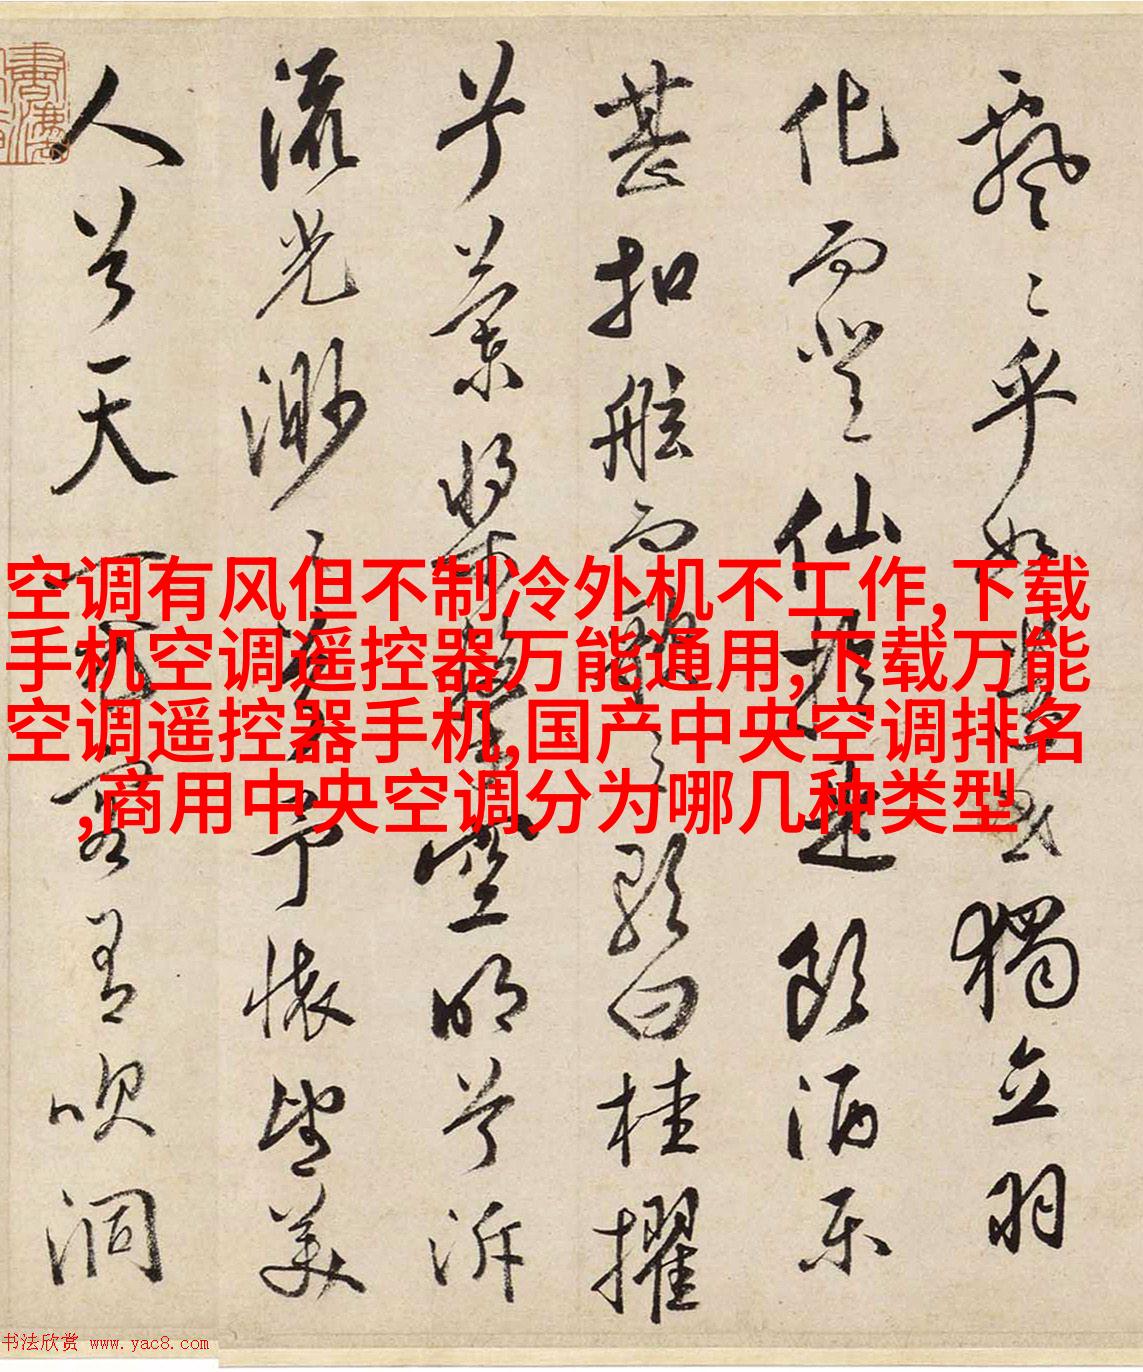 飄〻乎如遺世獨立羽
化而登仙於是飲酒樂
甚扣舷而歌之歌曰桂擢
兮蘭槳擊空明兮泝
流光渺〻兮予懷望美
人兮天一方客有吹洞
空调有风但不制冷外机不工作,下载
手机空调遥控器万能通用,下载万能
空调遥控器手机,国产中央空调排名
,商用中央空调分为哪几种类型
书法欣赏 www.yac8.com